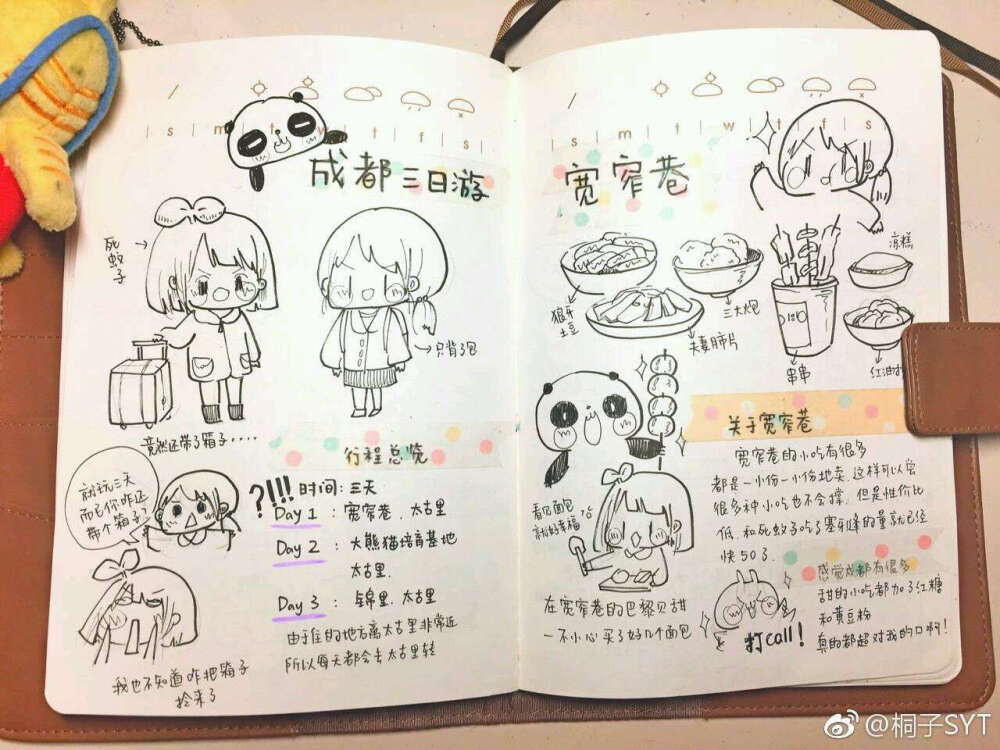 s m t w t f s
成都三日游
死蚊子
只背了包
竟然还带了箱子····
就玩三天
而已你咋还
带个箱子?
?!!!
我也不知道咋把箱子
捡来了
行程总览
时间：三天
Day 1：宽窄巷.太古里
Day 2：大熊猫培育基地
太古里.
Day 3：锦里.太古里
由于住的地方离太古里非常近
所以每天都会去太古里转
s m t w t f s
宽窄巷
狼牙
土豆
三大炮
夫妻肺片
串串
凉糕
红油抄
关于宽窄巷
宽窄巷的小吃有很多
都是一小份一小份地卖.这样可以尝
很多种小吃也不会撑.但是性价比
低.和死蚊子吃了塞牙缝的量就已经
快50了.
看见面包
就好幸福
在宽窄巷的巴黎贝甜
一不小心买了好几个面包
打call!
感觉成都有很多
甜的小吃都加了红糖
和黄豆粉
真的都超对我的口啊!
@桐子SYT